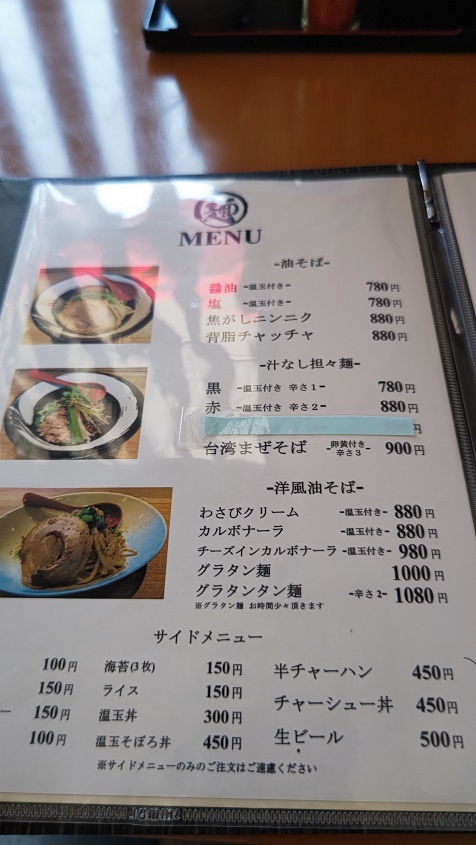 麺
MENU
-油そば-
醤油 -温玉付き- 780円
塩 -温玉付き- 780円
焦がしニンニク 880円
背脂チャッチャ 880円
-汁なし担々麺-
黒 -温玉付き 辛さ1- 780円
赤 -温玉付き 辛さ2- 880円
円
台湾まぜそば -卵黄付き 辛さ3- 900円
-洋風油そば-
わさびクリーム -温玉付き- 880円
カルボナーラ -温玉付き- 880円
チーズインカルボナーラ -温玉付き- 980円
グラタン麺 1000円
グラタンタン麺 -辛さ2- 1080円
※グラタン麺 お時間少々頂きます
サイドメニュー
100円 海苔(3枚) 150円 半チャーハン 450円
150円 ライス 150円 チャーシュー丼 450円
ー 150円 温玉丼 300円 生ビール 500円
100円 温玉そぼろ丼 450円
※サイドメニューのみのご注文はご遠慮ください